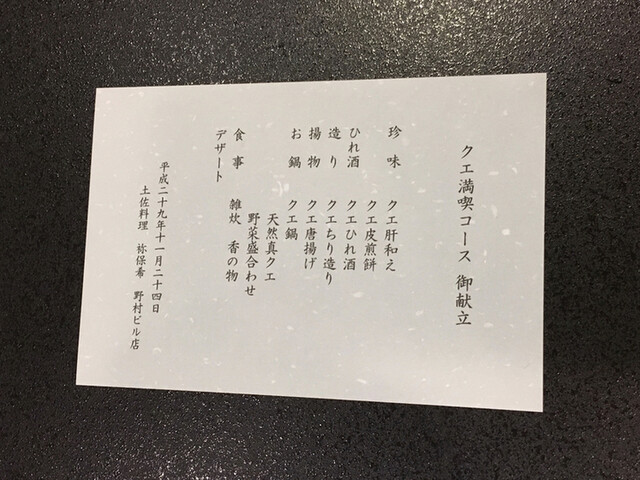 クエ満喫コース 御献立
珍味 クエ肝和え
クエ皮煎餅
ひれ酒 クエひれ酒
造り クエちり造り
揚物 クエ唐揚げ
お鍋 クエ鍋
天然真クエ
野菜盛合わせ
食事 雑炊 香の物
デザート
平成二十九年十一月二十四日
土佐料理 祢保希 野村ビル店